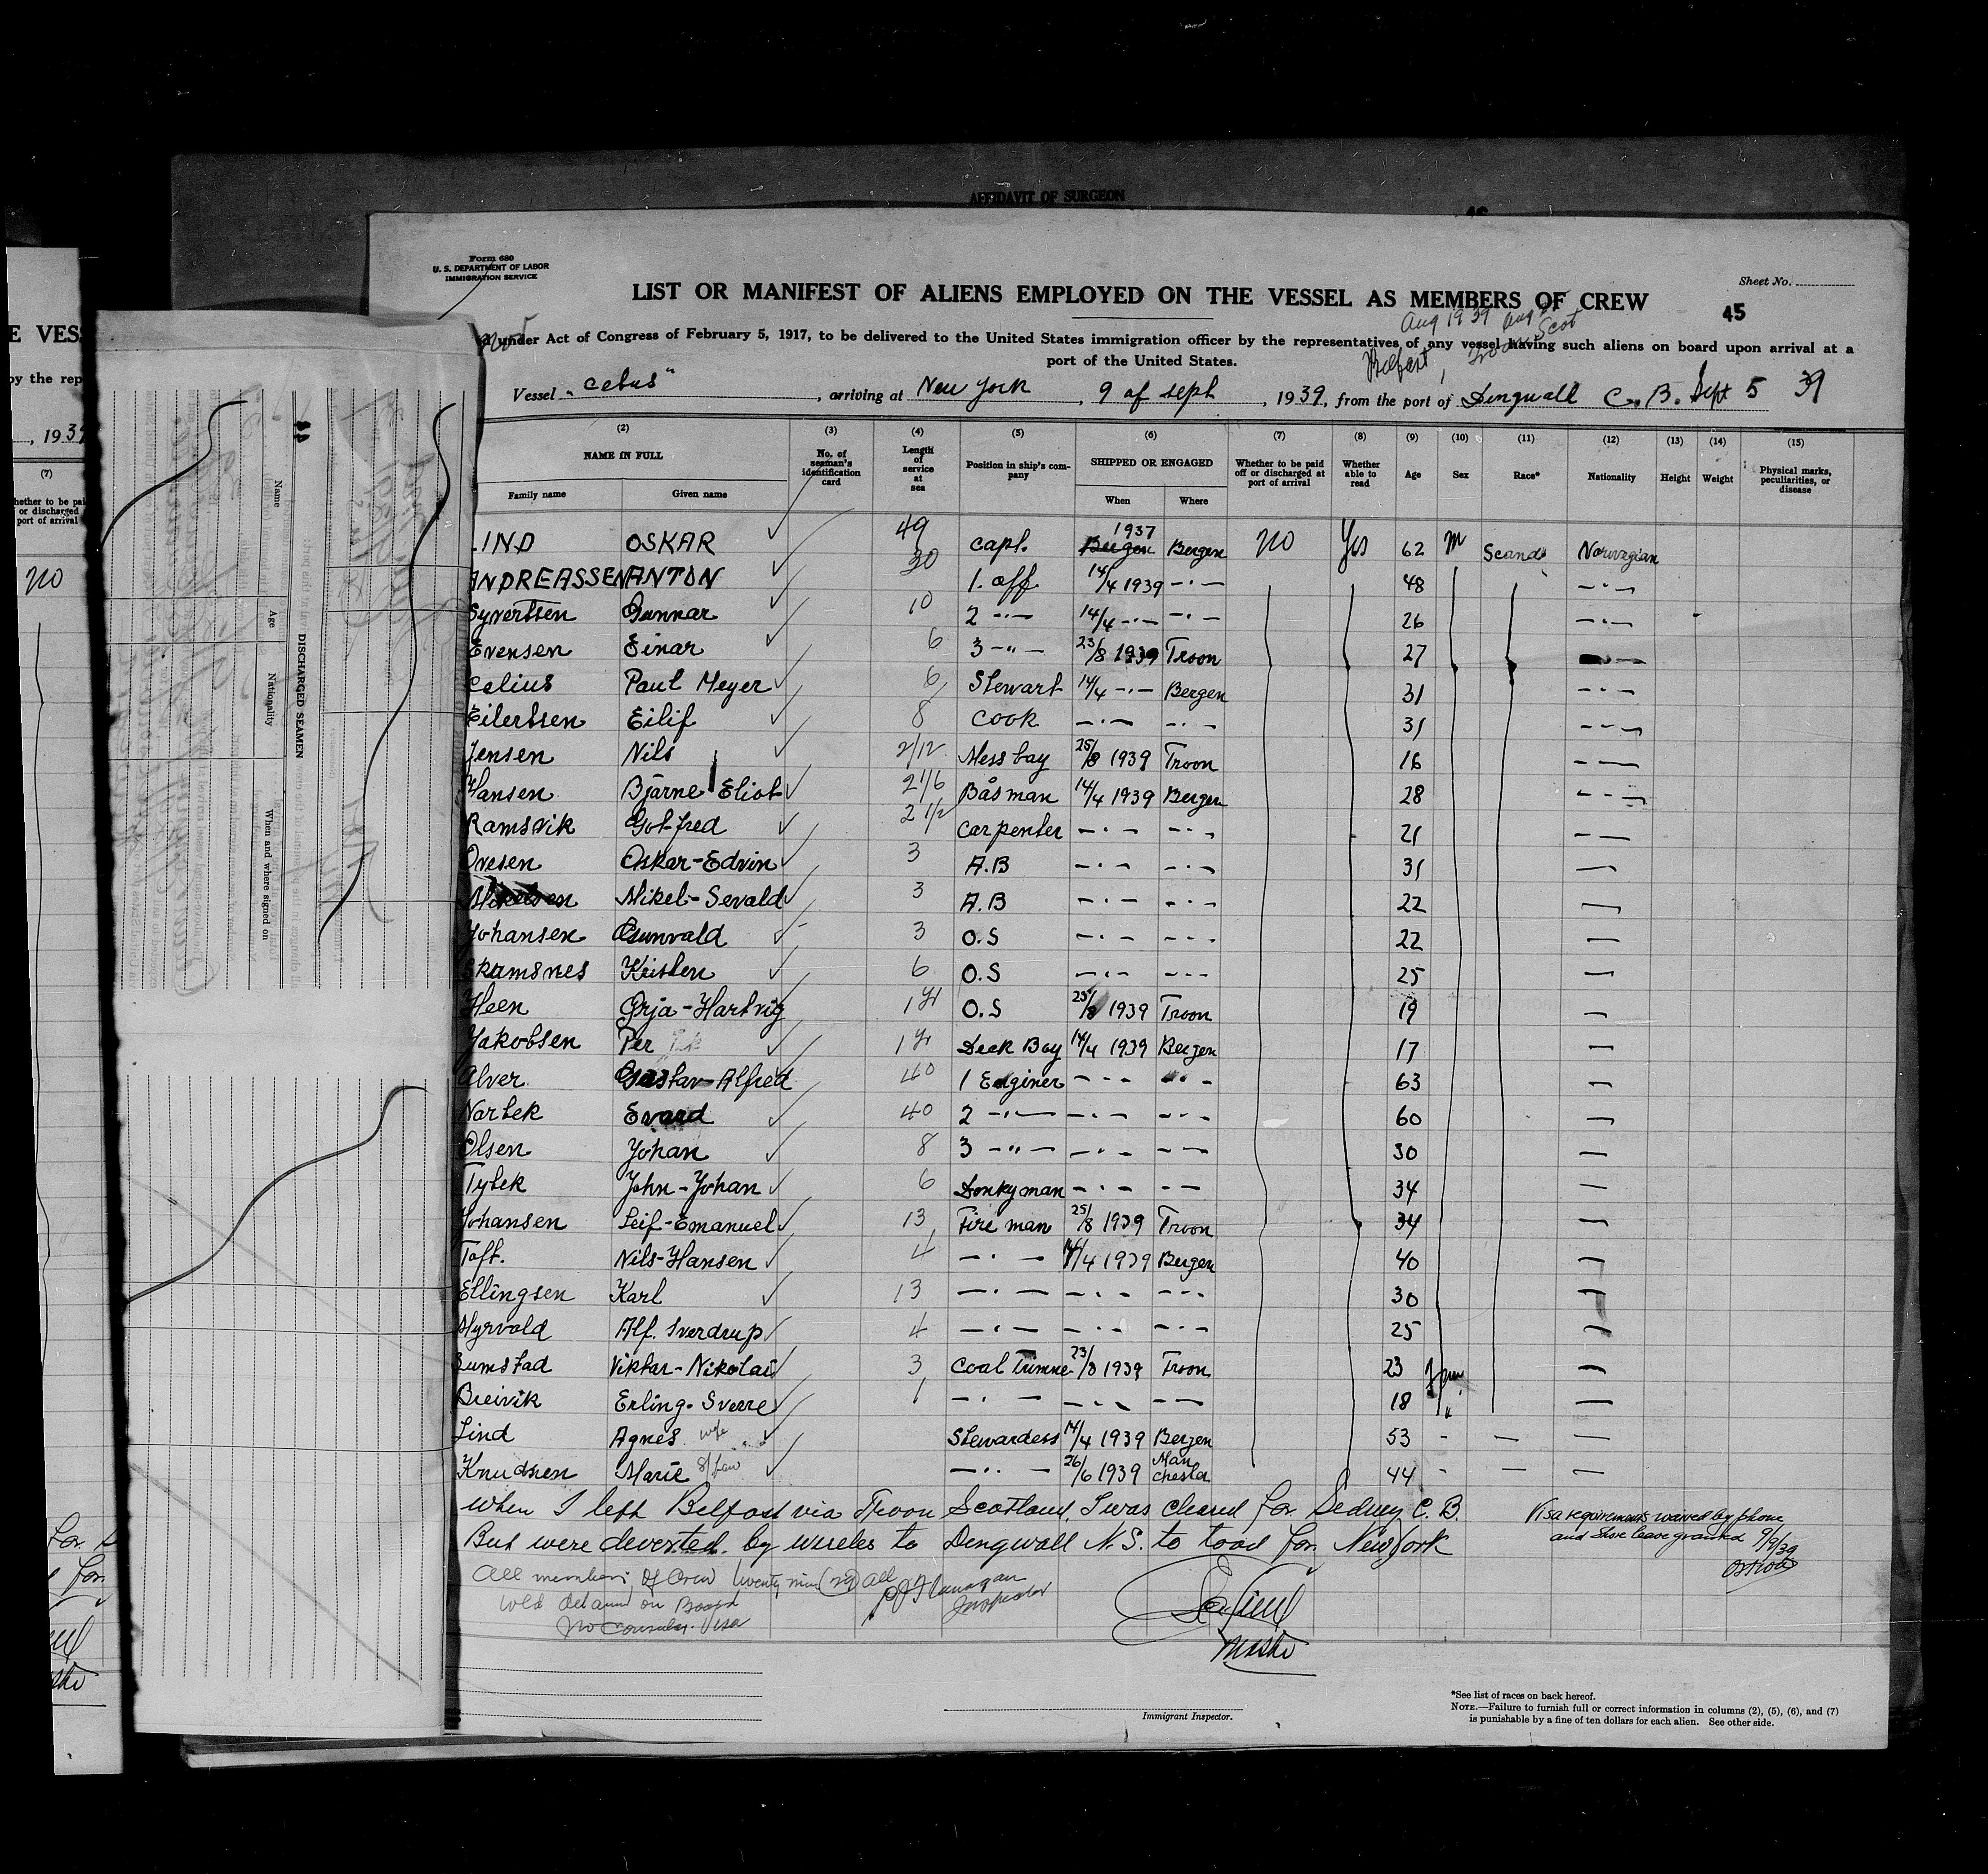 AFFIDAVIT OF SURGEON
Form 680
U. S. DEPARTMENT OF LABOR
IMMIGRATION SERVICE
Sheet No.
LIST OR MANIFEST OF ALIENS EMPLOYED ON THE VESSEL AS MEMBERS OF CREW
45
Aug 19 39
Scot
under Act of Congress of February 5, 1917, to be delivered to the United States immigration officer by the representatives of any vessel having such aliens on board upon arrival at a
port of the United States.
Belfast, Troon
Vessel "Cebus", arriving at New York, 9 of sept, 1939, from the port of Dingwall C. B. Sept 5 39
(2) (3) (4) (5) (6) (7) (8) (9) (10) (11) (12) (13) (14) (15)
NAME IN FULL No. of seaman's identification card Length of service at sea Position in ship's company SHIPPED OR ENGAGED Whether to be paid off or discharged at port of arrival Whether able to read Age Sex Race* Nationality Height Weight Physical marks, peculiarities, or disease
Family name Given name When Where
LIND OSKAR 49 Capt. 1937 Bergen Bergen no Yes 62 m Scand Norwegian
ANDREASSEN ANTON 30 1. off 14/4 1939 -·- 48 -·-
Syvertsen Gunnar 10 2 -·- 14/4 -·- -·- 26 -·-
Evensen Einar 6 3 -"- 23/8 1939 Troon 27 -
Celius Paul Meyer 6 Stewart 14/4 -·- Bergen 31 -·-
Eilertsen Eilif 8 Cook -·- -·- 31 -·-
Jensen Nils 2/12 Mess boy 25/8 1939 Troon 16 -
Hansen Bjarne Eliot 2 1/6 Båsman 14/4 1939 Bergen 28 -
Ramsvik Gotfred 2 1/2 Carpenter -·- -·- 21 -
Ovesen Oskar-Edvin 3 A.B -·- -·- 31 -
Mikelsen Mikel-Sevald 3 A.B -·- -·- 22 -
Johansen Gunvald 3 O.S -·- -·- 22 -
Skamsnes Kristen 6 O.S -·- -·- 25 -
Heen Ørja-Hartvig 1 yr O.S 25/8 1939 Troon 19 -
Jakobsen Per 1 yr Deck Boy 14/4 1939 Bergen 17 -
Alver Gustav-Alfred 40 1 Enginer -·- -·- 63 -
Narbek Evard 40 2 -·- -·- -·- 60 -
Olsen Johan 8 3 -"- -·- -- 30 -
Tybek John-Johan 6 Donkyman -·- -- 34 -
Johansen Leif-Emanuel 13 Fire man 25/8 1939 Troon 34 -
Toft. Nils-Hansen 4 -·- 14/4 1939 Bergen 40 -
Ellingsen Karl 13 -·- -·- -·- 30 -
Myrvold Alf. Sverdrup 4 -·- -·- -·- 25 -
Sumstad Viktar-Nikolai 3 Coal Trimne 23/8 1939 Troon 23 -
Breivik Erling-Sverre 1 -·- -·- -- 18 " -
Lind Agnes wife Stewardess 14/4 1939 Bergen 53 - - -
Knudsen Marie -··- 26/6 1939 Manchester 44 - - -
When I left Belfast via Troon Scotland, I was cleared for Sedney C. B.
But were deverted by wireles to Dingwall N.S. to load for New York
Visa requirements waived by phone
and shore leave granted 9/9/39
All members of Crew twenty nine (29) all
told detained on Board
No Consular Visa
P J Flanagan
Inspector
Master
Immigrant Inspector.
*See list of races on back hereof.
NOTE.—Failure to furnish full or correct information in columns (2), (5), (6), and (7)
is punishable by a fine of ten dollars for each alien. See other side.
DISCHARGED SEAMEN
Name
Age
Nationality
When and where signed on
E VESS
by the rep
, 1939
(7)
whether to be paid
or discharged
port of arrival
no